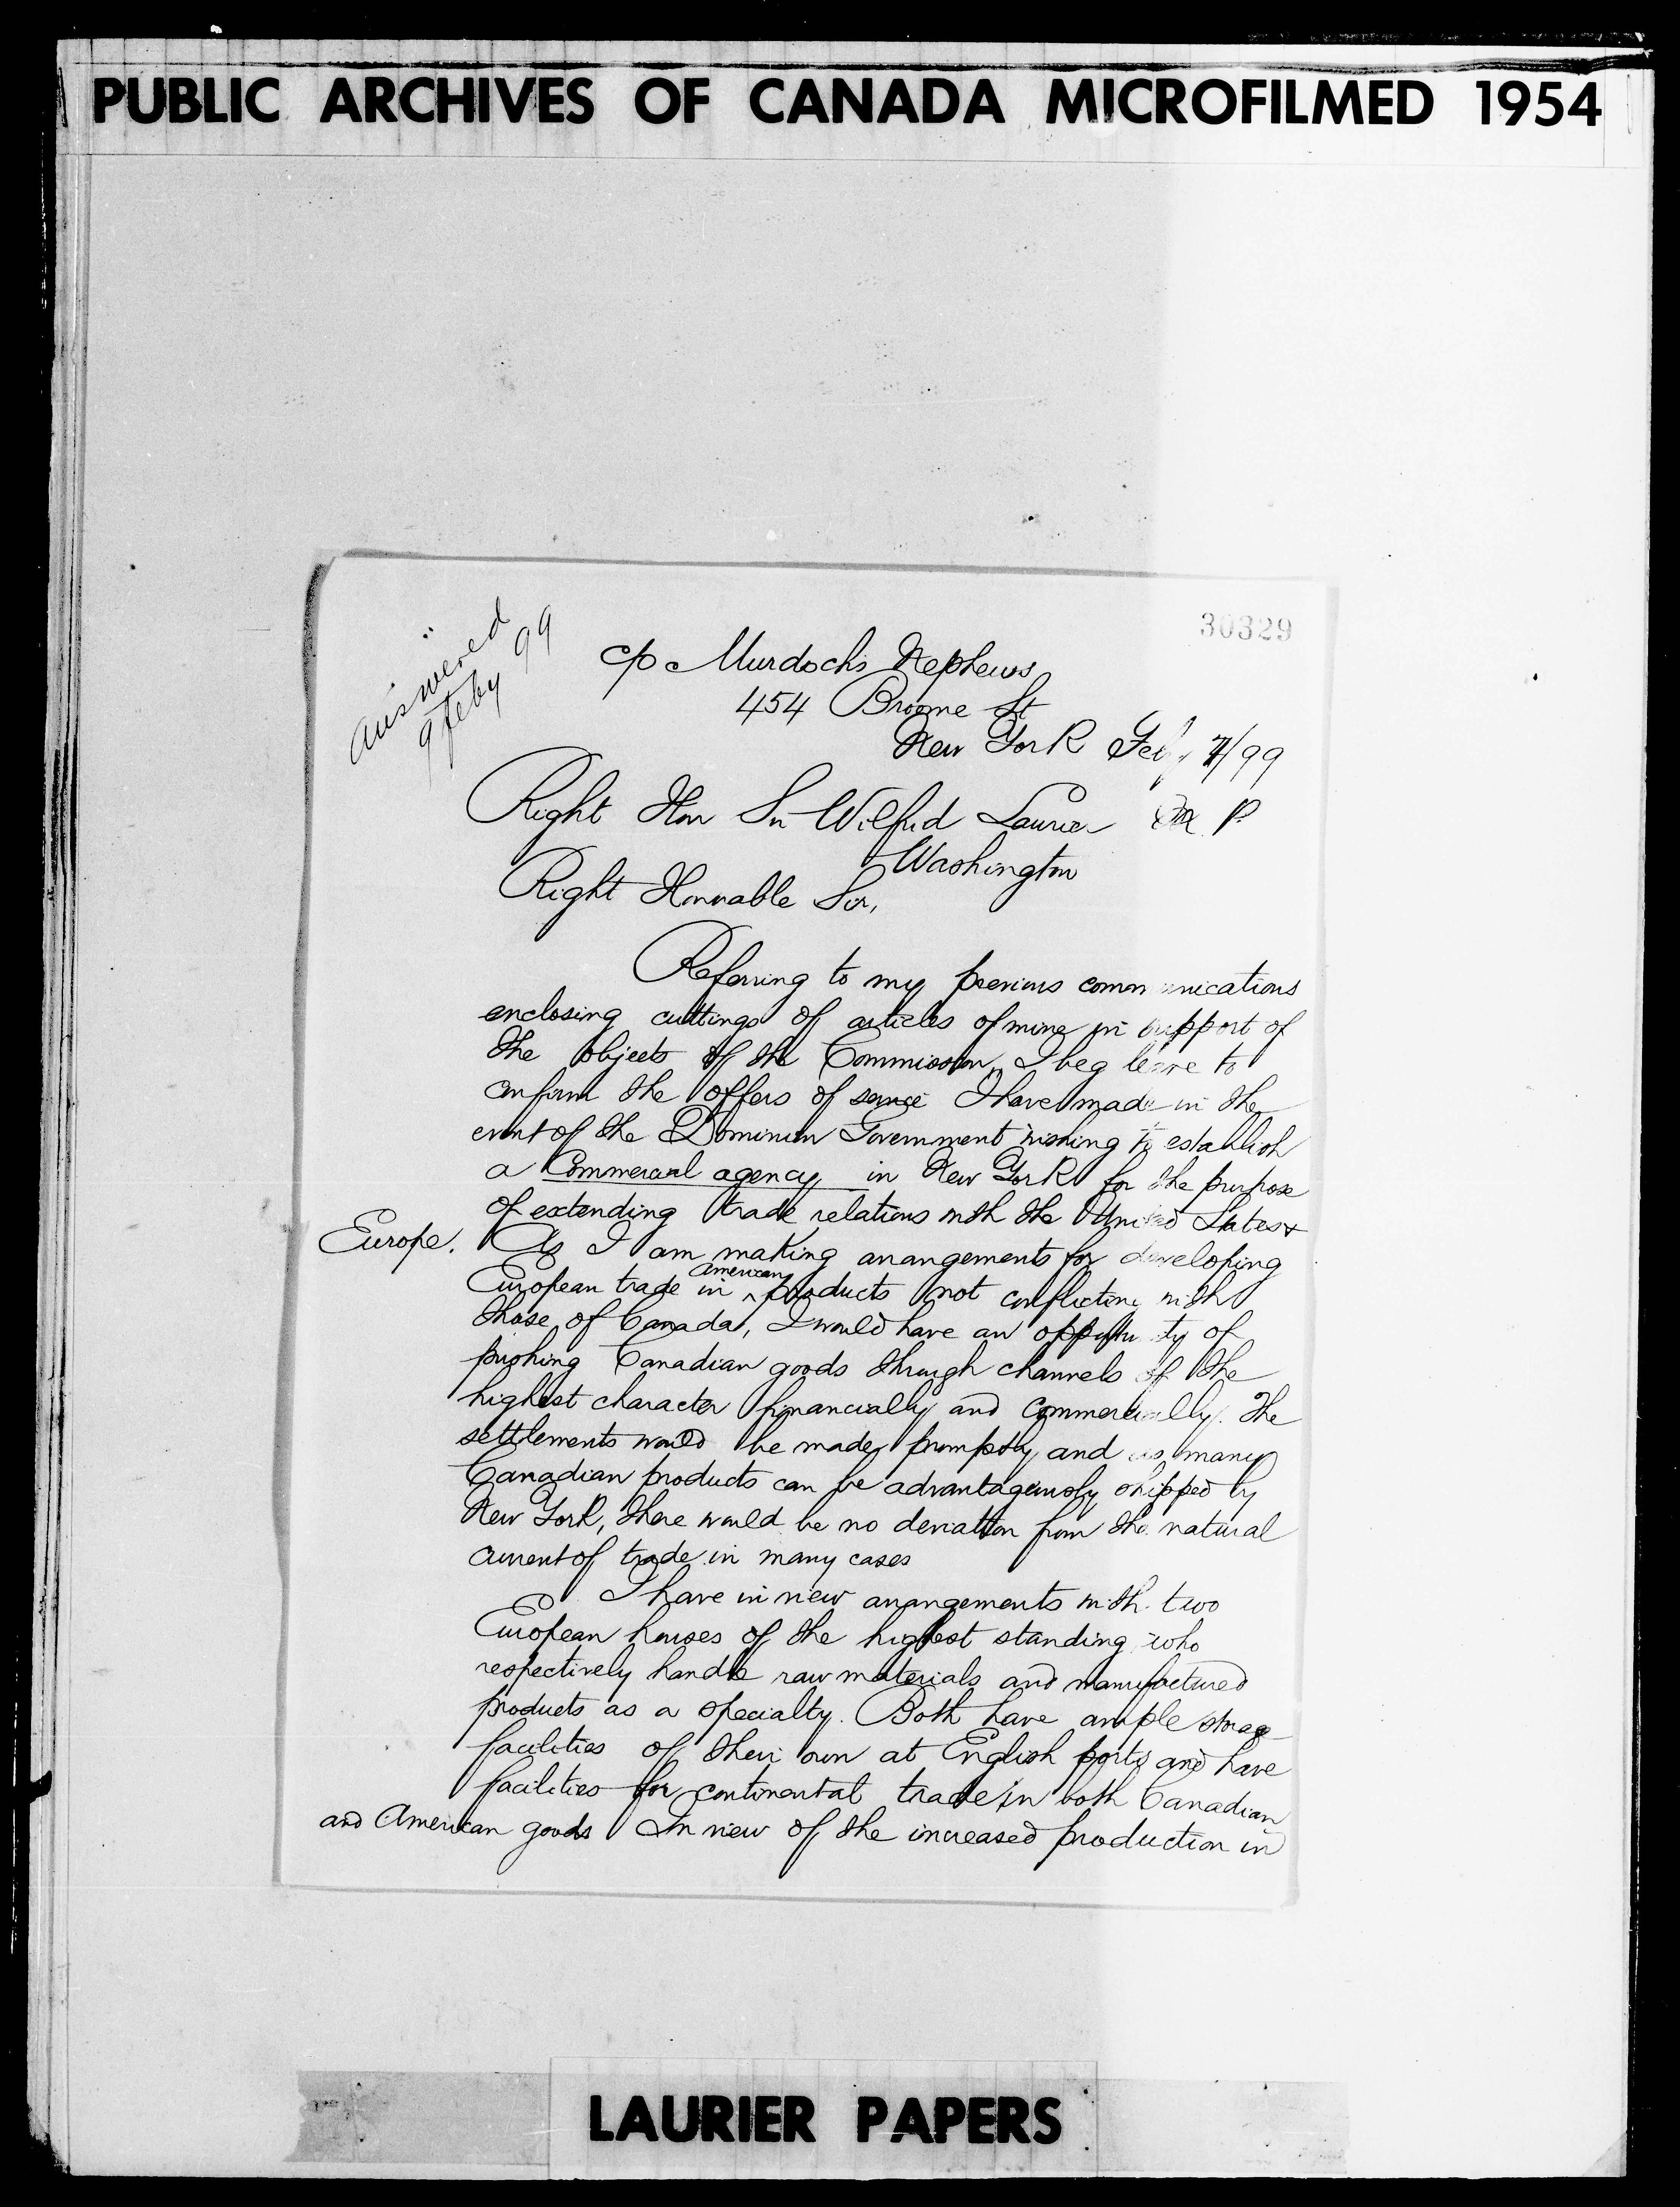 PUBLIC ARCHIVES OF CANADA MICROFILMED 1954
30329
answered
9 feby 99
c/o Murdoch's Nephews
454 Broome St
New York Feby 7/99
Right Hon Sir Wilfrid Laurier P.
Washington
Right Honorable Sir,
Referring to my previous communications
enclosing cuttings of articles of mine in support of
the objects of the Commission, I beg leave to
confirm the offers of service I have made in the
event of the Dominion Government wishing to establish
a Commercial agency in New York for the purpose
of extending trade relations with the United States &
Europe. As I am making arrangements for developing
European trade in ^American products not conflicting with
those of Canada, I would have an opportunity of
pushing Canadian goods through channels of the
highest character financially and commercially. The
settlements would be made promptly, and as many
Canadian products can be advantageously shipped by
New York, there would be no deviation from the natural
current of trade in many cases
I have in view arrangements with two
European houses of the highest standing who
respectively handle raw materials and manufactured
products as a specialty. Both have ample storage
facilities of their own at English ports and have
facilities for continental trade in both Canadian
and American goods In view of the increased production in
LAURIER PAPERS